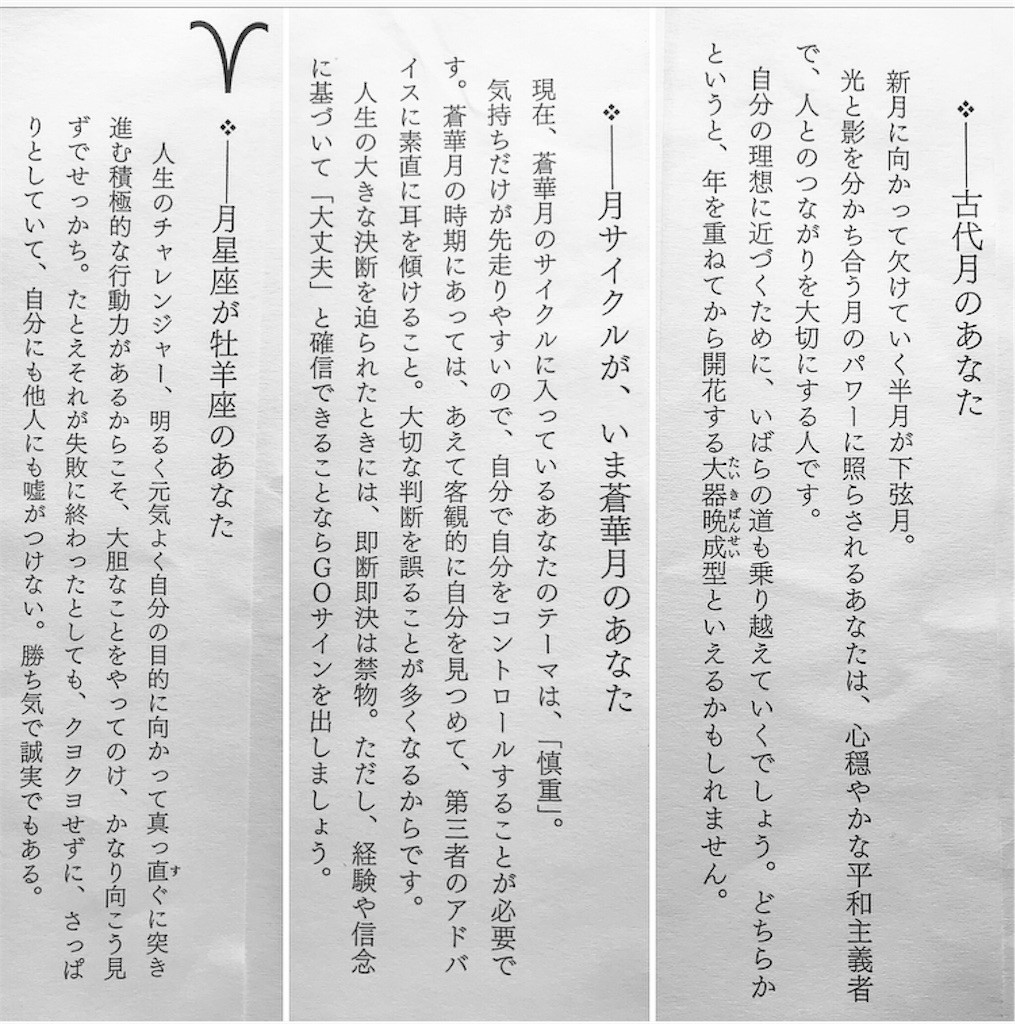 ❖――古代月のあなた
新月に向かって欠けていく半月が下弦月。
光と影を分かち合う月のパワーに照らされるあなたは、心穏やかな平和主義者
で、人とのつながりを大切にする人です。
自分の理想に近づくために、いばらの道も乗り越えていくでしょう。どちらか
というと、年を重ねてから開花する大器晩成型といえるかもしれません。
たいきばんせい
❖――月サイクルが、いま蒼華月のあなた
現在、蒼華月のサイクルに入っているあなたのテーマは、「慎重」。
気持ちだけが先走りやすいので、自分で自分をコントロールすることが必要で
す。蒼華月の時期にあっては、あえて客観的に自分を見つめて、第三者のアドバ
イスに素直に耳を傾けること。大切な判断を誤ることが多くなるからです。
人生の大きな決断を迫られたときには、即断即決は禁物。ただし、経験や信念
に基づいて「大丈夫」と確信できることならGOサインを出しましょう。
♈
❖――月星座が牡羊座のあなた
人生のチャレンジャー、明るく元気よく自分の目的に向かって真っ直ぐに突き
す
進む積極的な行動力があるからこそ、大胆なことをやってのけ、かなり向こう見
ずでせっかち。たとえそれが失敗に終わったとしても、クヨクヨせずに、さっぱ
りとしていて、自分にも他人にも嘘がつけない。勝ち気で誠実でもある。